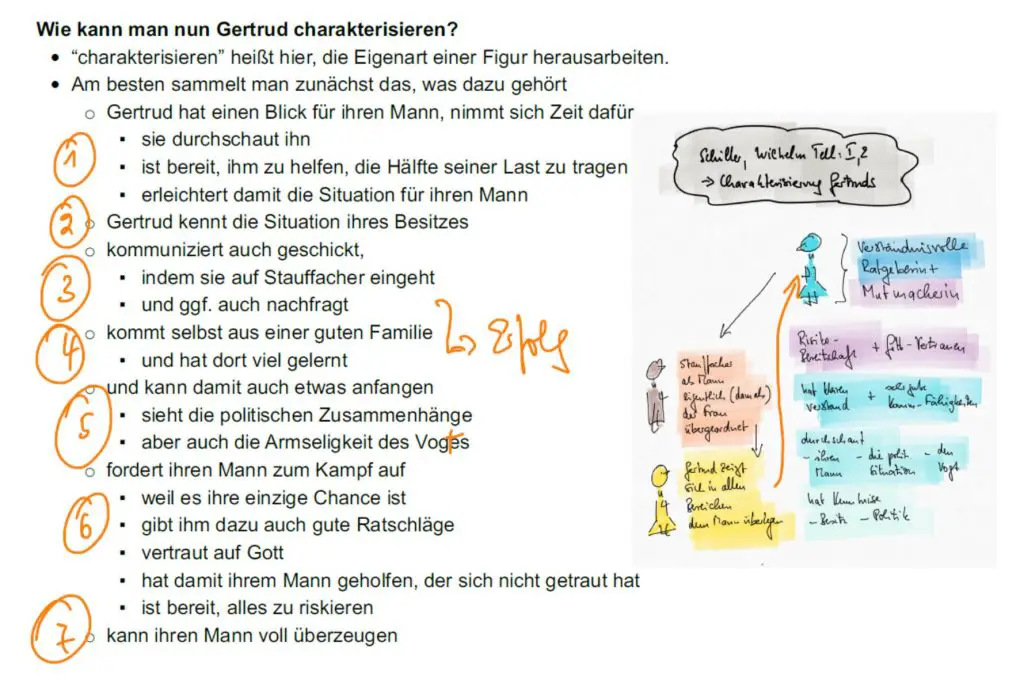 Wie kann man nun Gertrud charakterisieren?
• “charakterisieren” heißt hier, die Eigenart einer Figur herausarbeiten.
• Am besten sammelt man zunächst das, was dazu gehört
○ Gertrud hat einen Blick für ihren Mann, nimmt sich Zeit dafür
1
▪ sie durchschaut ihn
▪ ist bereit, ihm zu helfen, die Hälfte seiner Last zu tragen
▪ erleichtert damit die Situation für ihren Mann
2
○ Gertrud kennt die Situation ihres Besitzes
○ kommuniziert auch geschickt,
3
▪ indem sie auf Stauffacher eingeht
▪ und ggf. auch nachfragt
4
○ kommt selbst aus einer guten Familie
▪ und hat dort viel gelernt
Erfolg
5
○ und kann damit auch etwas anfangen
▪ sieht die politischen Zusammenhänge
▪ aber auch die Armseligkeit des Vogts
○ fordert ihren Mann zum Kampf auf
6
▪ weil es ihre einzige Chance ist
▪ gibt ihm dazu auch gute Ratschläge
▪ vertraut auf Gott
▪ hat damit ihrem Mann geholfen, der sich nicht getraut hat
▪ ist bereit, alles zu riskieren
7
○ kann ihren Mann voll überzeugen
Schiller, Wilhelm Tell: I,2
→ Charakterisierung Gertruds
Verständnisvolle
Ratgeberin +
Mutmacherin
Risiko-
Bereitschaft + Gott-Vertrauen
hat klaren
Verstand + sehr gute
Komm-Fähigkeiten
durchschaut
- ihren
Mann
- die polit.
Situation
- den
Vogt
hat Kenntnisse
- Besitz - Politik
Stauffacher
als Mann
eigentlich (damals)
der Frau
übergeordnet
Gertrud zeigt
sich in allen
Bereichen
dem Mann überlegen